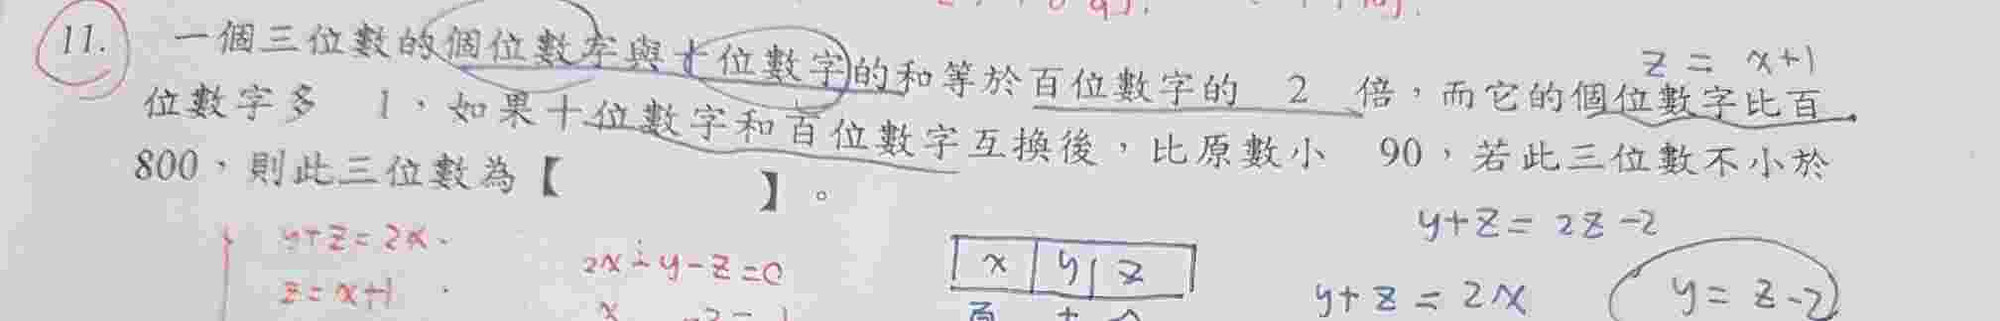 11. 一個三位數的個位數字與十位數字的和等於百位數字的 2 倍，而它的個位數字比百
位數字多 1，如果十位數字和百位數字互換後，比原數小 90，若此三位數不小於
800，則此三位數為【 】。
z = x+1
y+z = 2z-2
y+z = 2x
z = x+1
2x-y-z=0
x y z
y+z = 2x
y = z-2